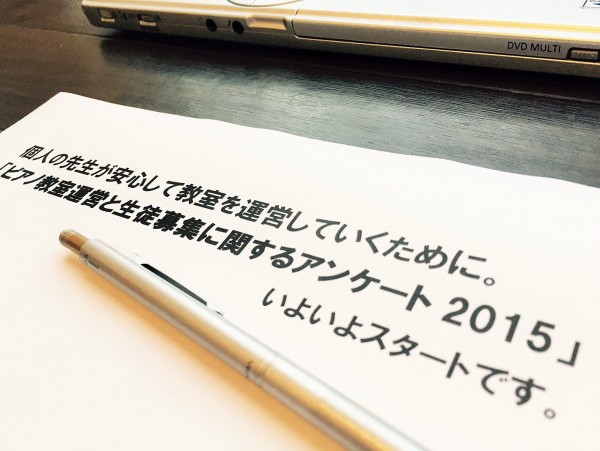 DVD MULTI
個人の先生が安心して教室を運営していくために。
「ピアノ教室運営と生徒募集に関するアンケート 2015」
いよいよスタートです。